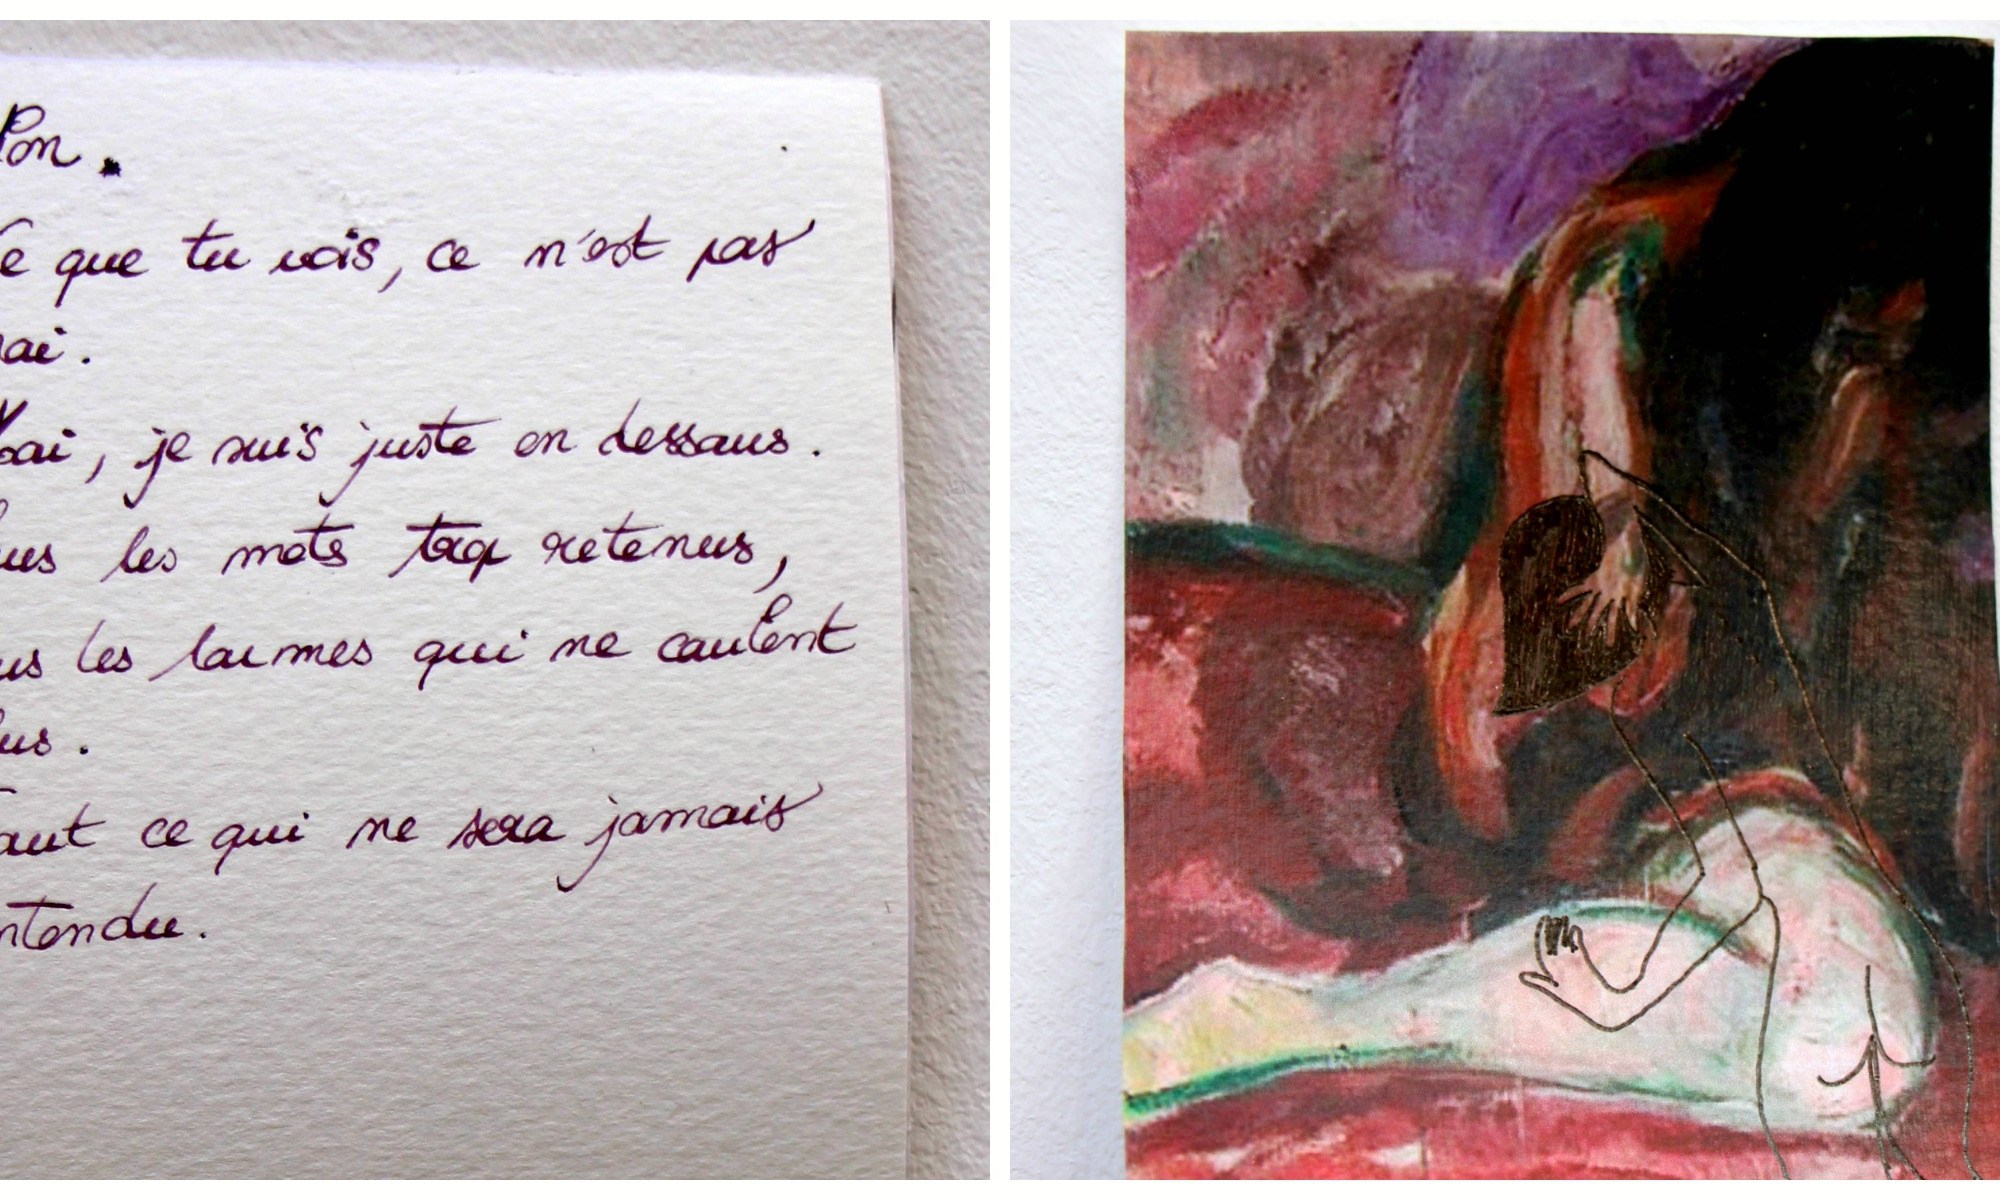 Pon.
Ce que tu vois, ce n'est pas
rai.
Moi, je suis juste en dessous.
ous les mots trop retenus,
ous les larmes qui ne coulent
lus.
Tout ce qui ne sera jamais
ntendu.